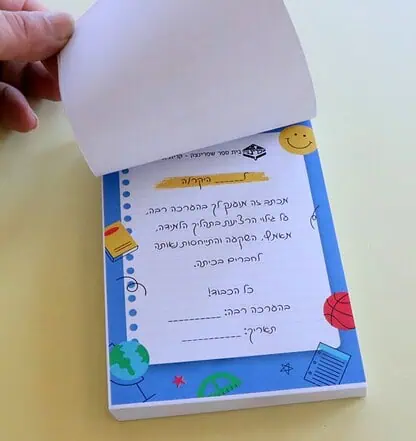 בית ספר שפרינצק - קרית
ל_____ היקר/ה
מכתב זה מוענק לך בהערכה רבה,
על גילוי הרצינות בתהליך הלמידה,
מאמץ, השקעה והתייחסות נאותה
לחברים בכיתה.
כל הכבוד!
בהערכה רבה: _________
תאריך: _________